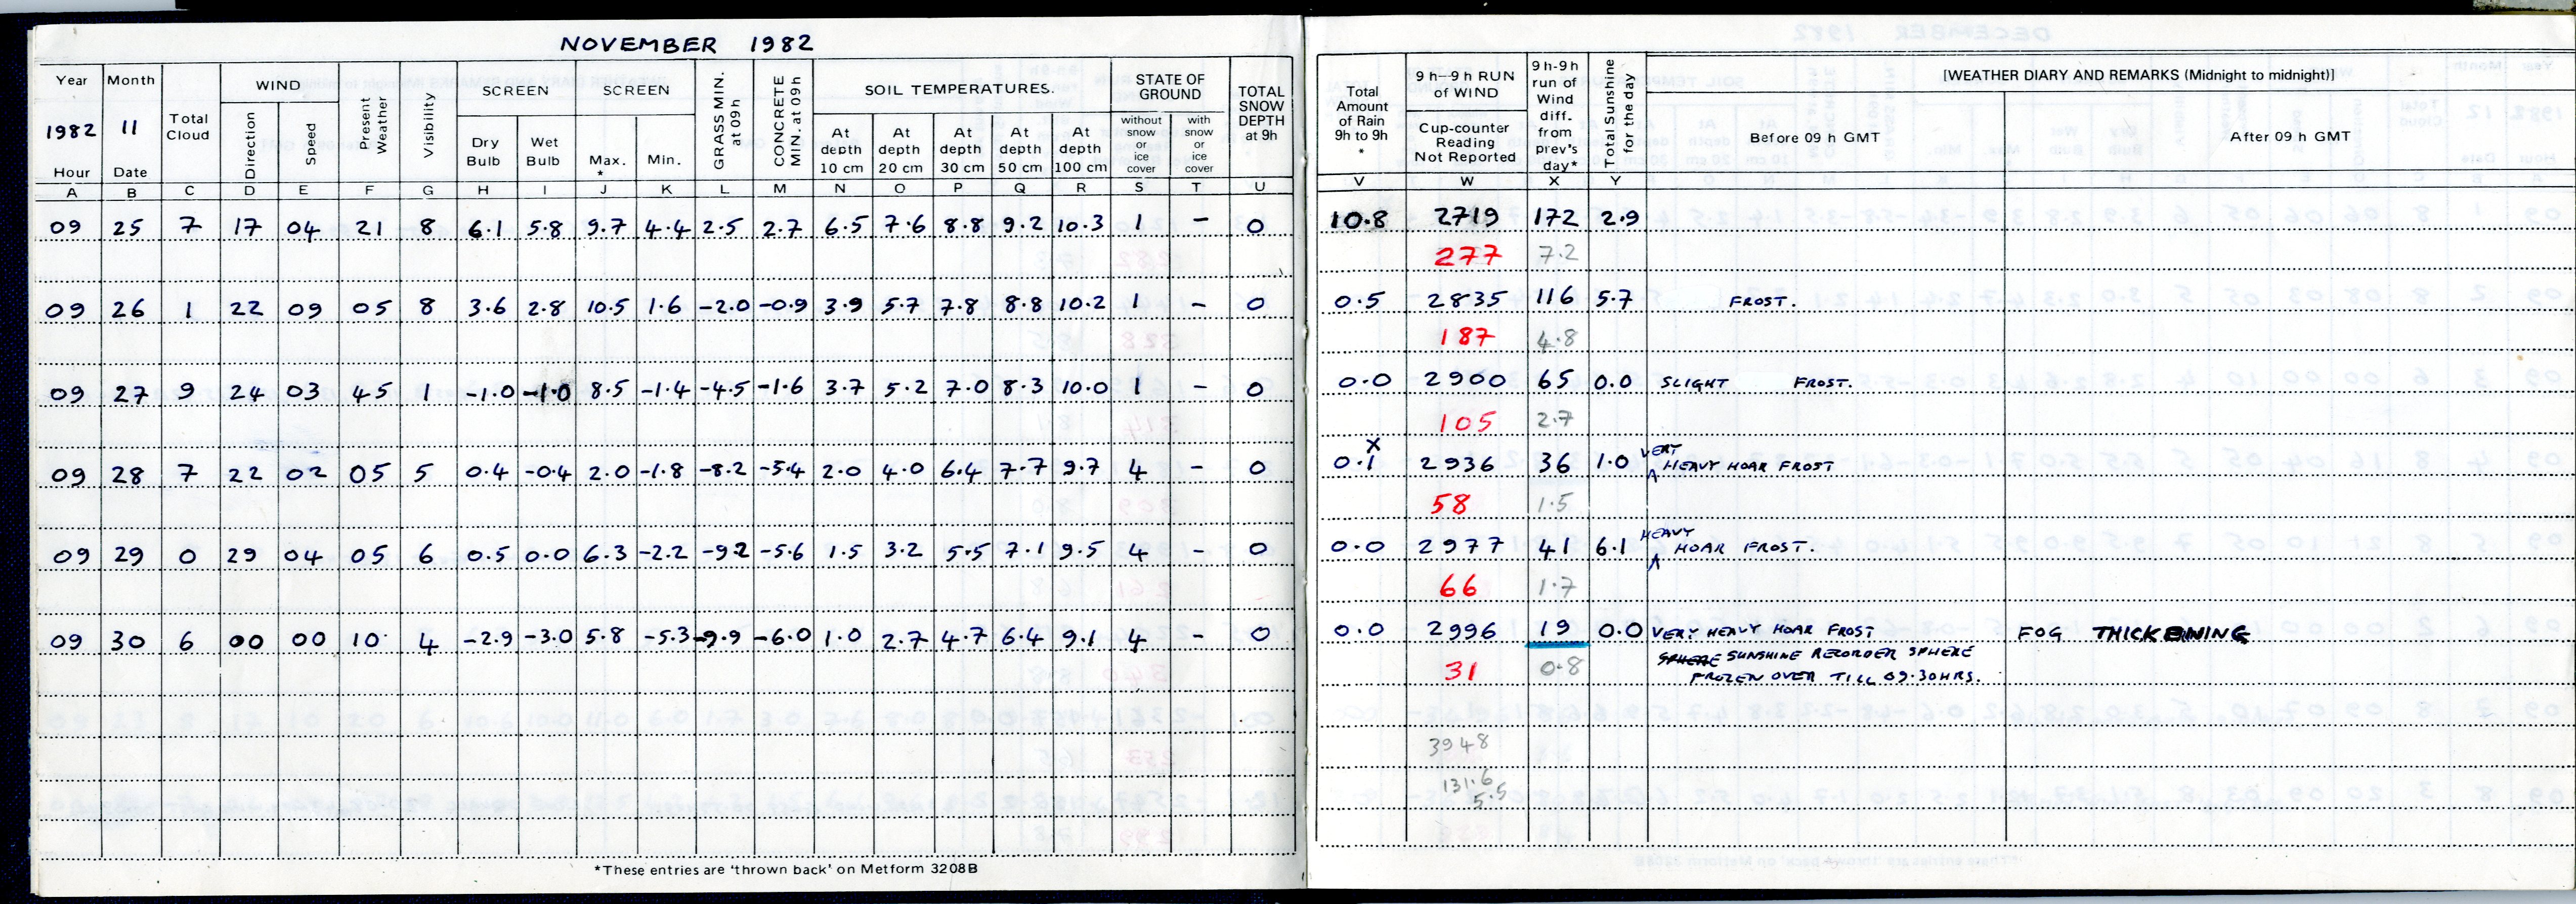 NOVEMBER 1982
Year Month Total Cloud WIND Present Weather Visibility SCREEN SCREEN GRASS MIN. at 09h CONCRETE MIN. at 09h SOIL TEMPERATURES. STATE OF GROUND TOTAL SNOW DEPTH at 9h Total Amount of Rain 9h to 9h * 9 h–9 h RUN of WIND 9 h-9 h run of Wind diff. from prev's day* Total Sunshine for the day [WEATHER DIARY AND REMARKS (Midnight to midnight)]
1982 11 Direction Speed Dry Bulb Wet Bulb Max. * Min. At depth 10 cm At depth 20 cm At depth 30 cm At depth 50 cm At depth 100 cm without snow or ice cover with snow or ice cover Cup-counter Reading Not Reported Before 09 h GMT After 09 h GMT
Hour Date
A B C D E F G H I J K L M N O P Q R S T U V W X Y
09 25 7 17 04 21 8 6.1 5.8 9.7 4.4 2.5 2.7 6.5 7.6 8.8 9.2 10.3 1 – 0 10.8 2719 172 2.9
277 7.2
09 26 1 22 09 05 8 3.6 2.8 10.5 1.6 -2.0 -0.9 3.9 5.7 7.8 8.8 10.2 1 – 0 0.5 2835 116 5.7 FROST.
187 4.8
09 27 9 24 03 45 1 -1.0 -1.0 8.5 -1.4 -4.5 -1.6 3.7 5.2 7.0 8.3 10.0 1 – 0 0.0 2900 65 0.0 SLIGHT FROST.
105 2.7
x VERY
09 28 7 22 02 05 5 0.4 -0.4 2.0 -1.8 -8.2 -5.4 2.0 4.0 6.4 7.7 9.7 4 – 0 0.1 2936 36 1.0 HEAVY HOAR FROST
58 1.5
HEAVY
09 29 0 29 04 05 6 0.5 0.0 6.3 -2.2 -9.2 -5.6 1.5 3.2 5.5 7.1 9.5 4 – 0 0.0 2977 41 6.1 HOAR FROST.
66 1.7
09 30 6 00 00 10 4 -2.9 -3.0 5.8 -5.3 -9.9 -6.0 1.0 2.7 4.7 6.4 9.1 4 – 0 0.0 2996 19 0.0 VERY HEAVY HOAR FROST FOG THICKENING
31 0.8 SPHERE SUNSHINE RECORDER SPHERE
FROZEN OVER TILL 09.30HRS.
3948
131.6
5.5
*These entries are 'thrown back' on Metform 3208B